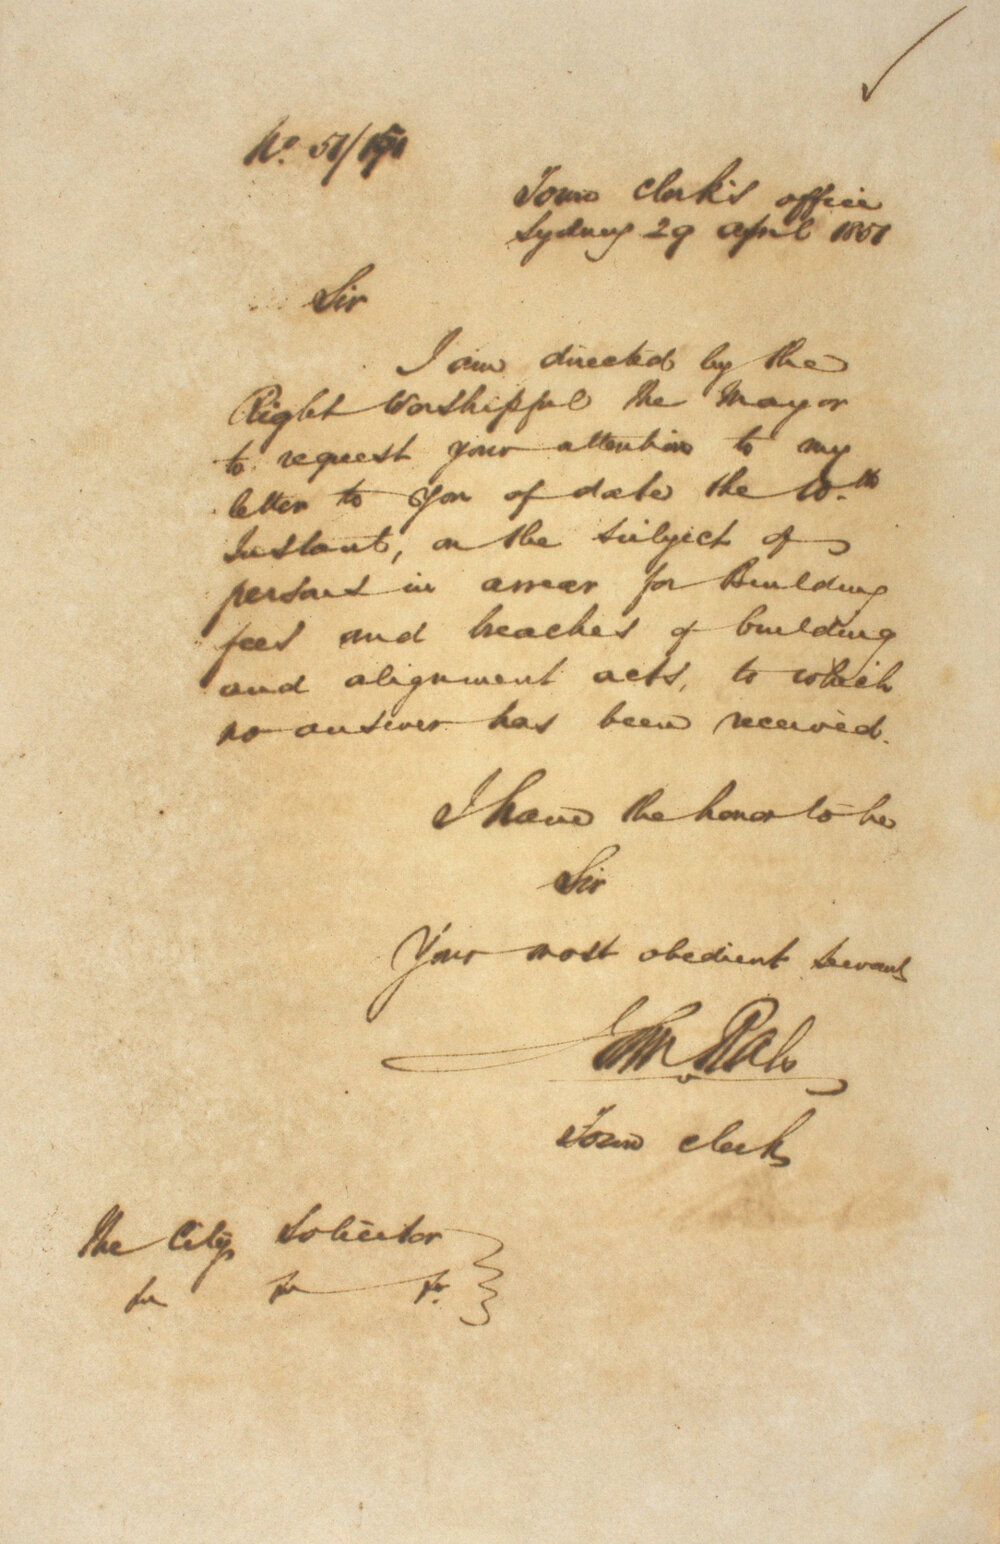 No. 51/151
Town Clerk's office
Sydney 29 April 1851
Sir
I am directed by the
Right Worshipful the Mayor
to request your attention to my
letter to you of date the 10.th
Instant, on the subject of
persons in arrear for Building
fees and breaches of building
and alignment acts, to which
no answer has been received.
I have the honor to be
Sir
Your most obedient servant
John Rae
Town Clerk
The City Solicitor